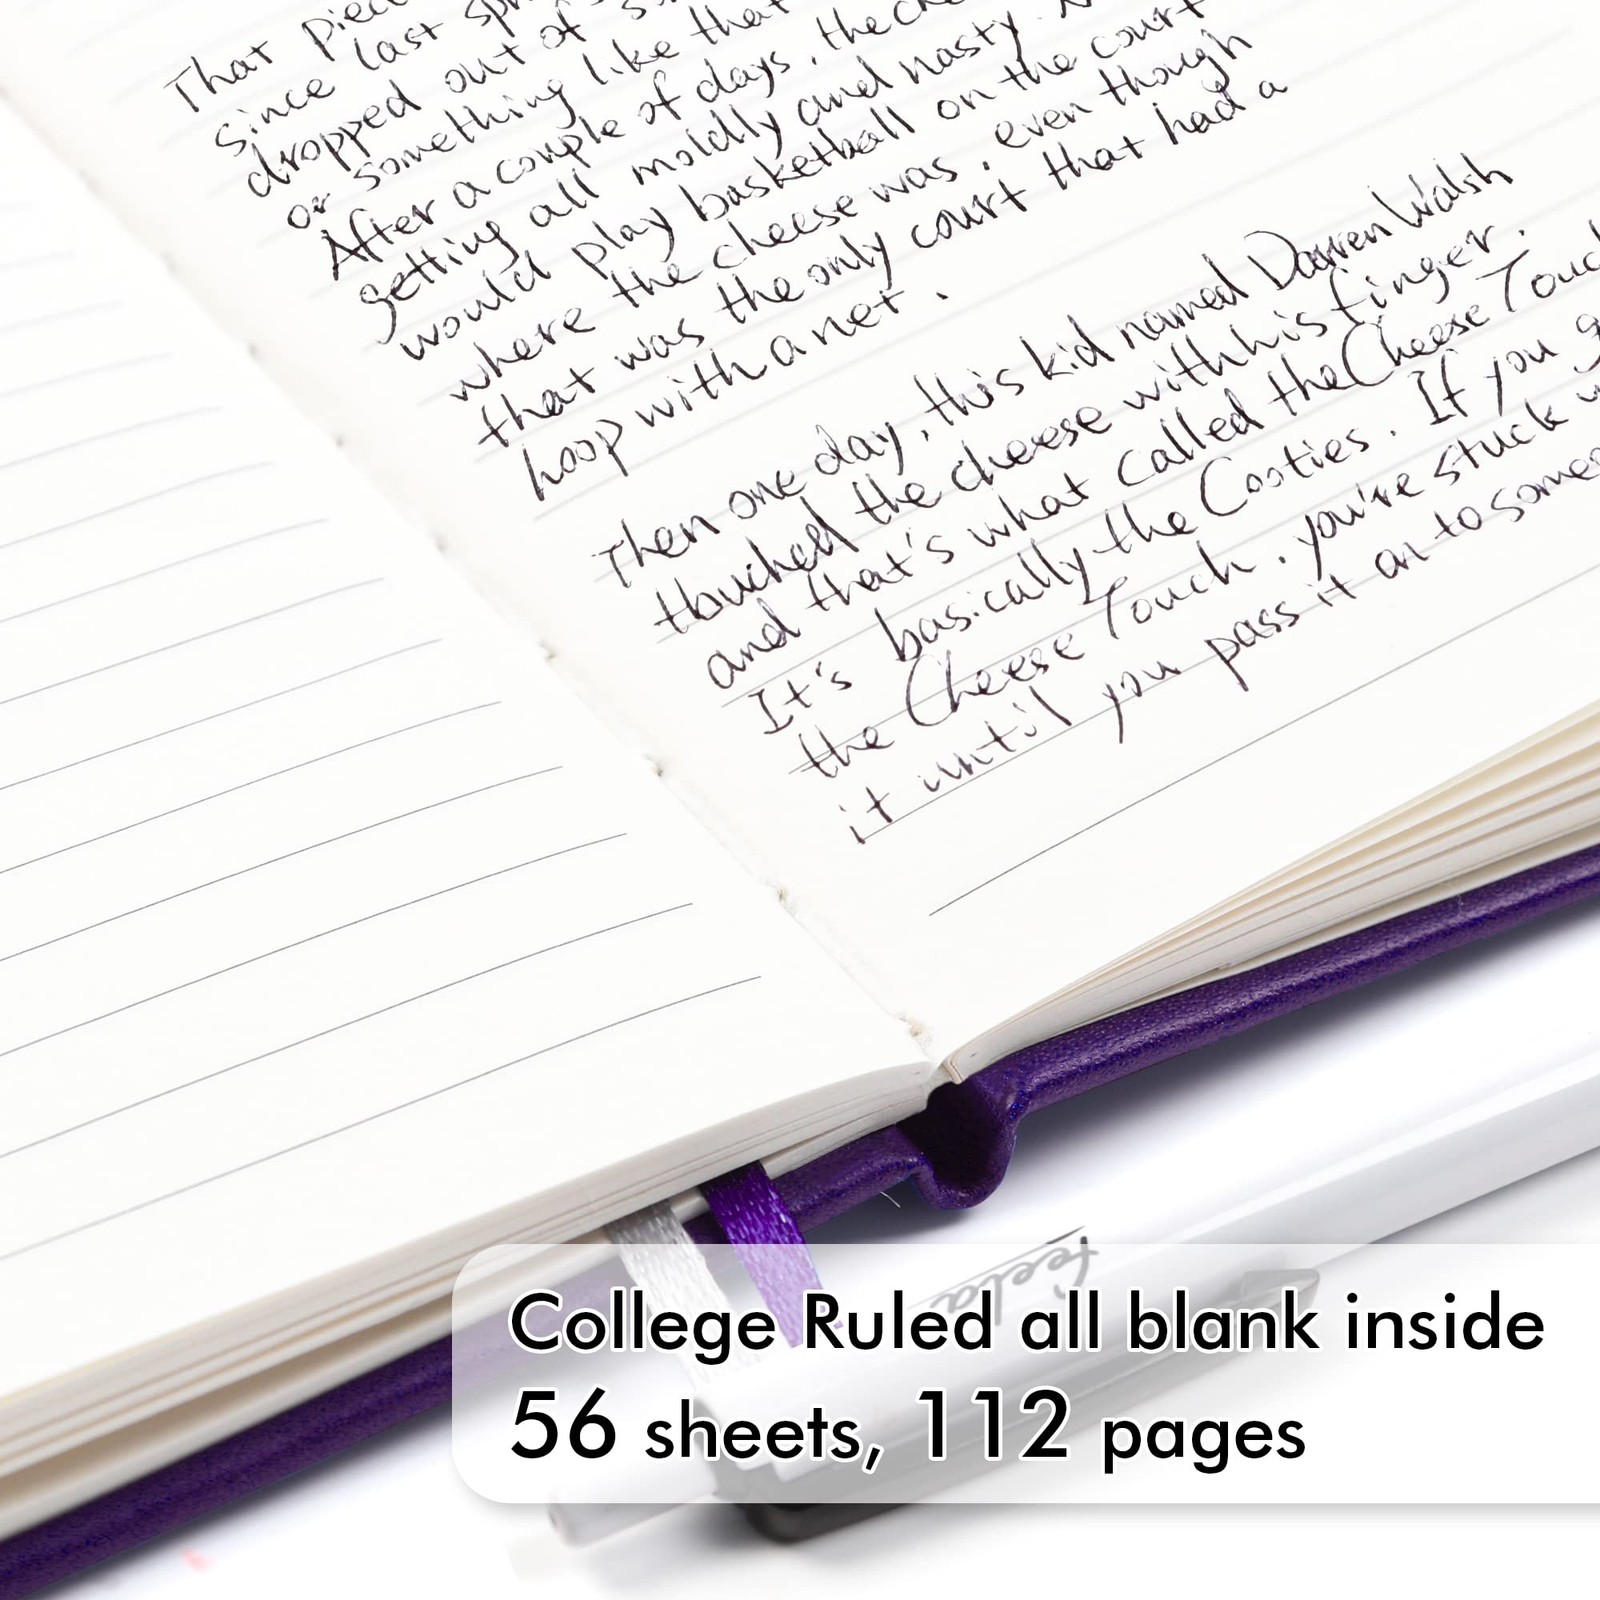 That piec
since last spr
dropped out of s
or something like that
After a couple of days, the che
getting all moldly and nasty. N
would play basketball on the court
where the cheese was, even though
that was the only court that had a
hoop with a net.
Then one day, this kid named Darren Walsh
touched the cheese with his finger.
and that's what called the Cheese Touc
It's basically the Cooties. If you g
the Cheese Touch. you're stuck w
it until you pass it on to someo
feela
College Ruled all blank inside
56 sheets, 112 pages